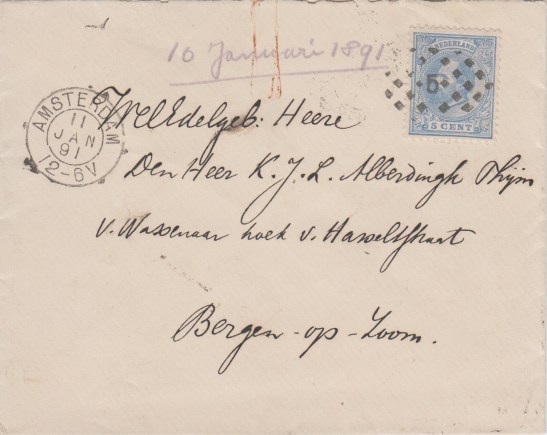 10 Januari 1891
NEDERLAND
5
5 CENT
AMSTERDAM
11
JAN
91
12-6V
WelEdelgeb: Heere
Den Heer K. J. L. Alberdingk Thijm
v. Wassenaar hoek v. Hasseltstraat
Bergen-op-Zoom.